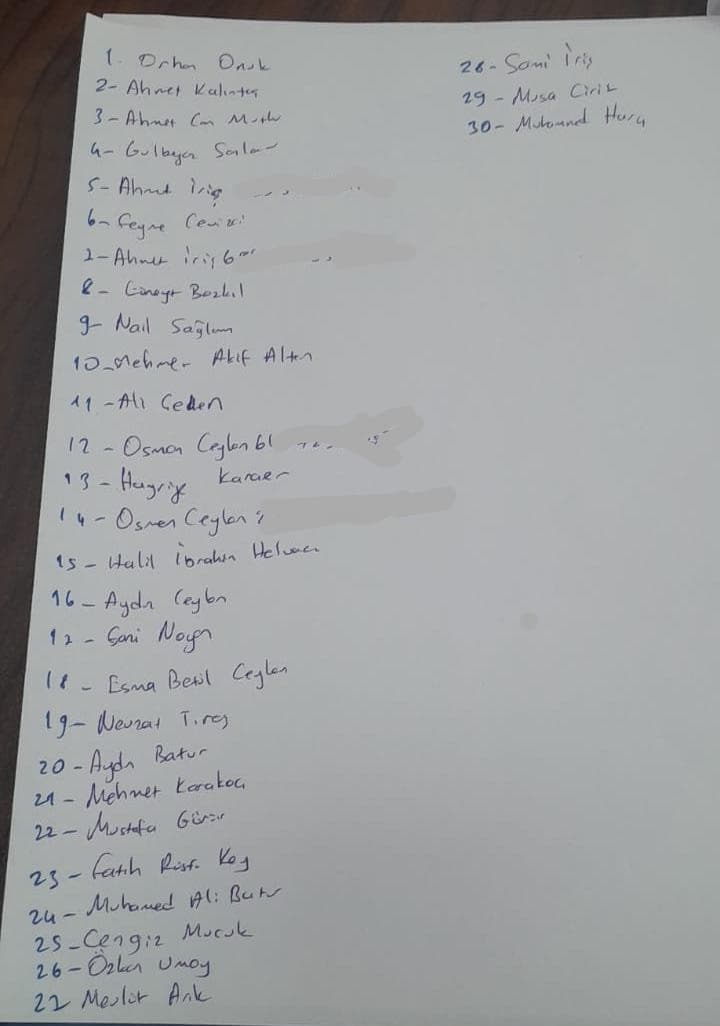 1. Orhan Onuk
2- Ahmet Kalıntaş
3- Ahmet Can Mutlu
4- Gulbeyaz Sarılar
5- Ahmet İriş
6- Feyme
7- Ahmet İriş 6
8- Cüneyt Bozkıl
9- Nail Sağlam
10- Mehmet Akif Altın
11- Ali Geden
12- Osman Ceylan 61
13- Hayriye Karaer
14- Osman Ceylan
15- Halil İbrahim Helvacı
16- Aydın Ceylan
17- Sani Noyan
18- Esma Betül Ceylan
19- Nevzat Tireş
20- Aydın Batur
21- Mehmet Karakoç
22- Mustafa Gürsır
23- Fatih Rüşt. Koy
24- Muhamed Ali Batur
25- Cengiz Mucuk
26- Özkan Umay
27 Mevlüt Arık
28- Sami İriş
29- Musa Cirit
30- Muhammed